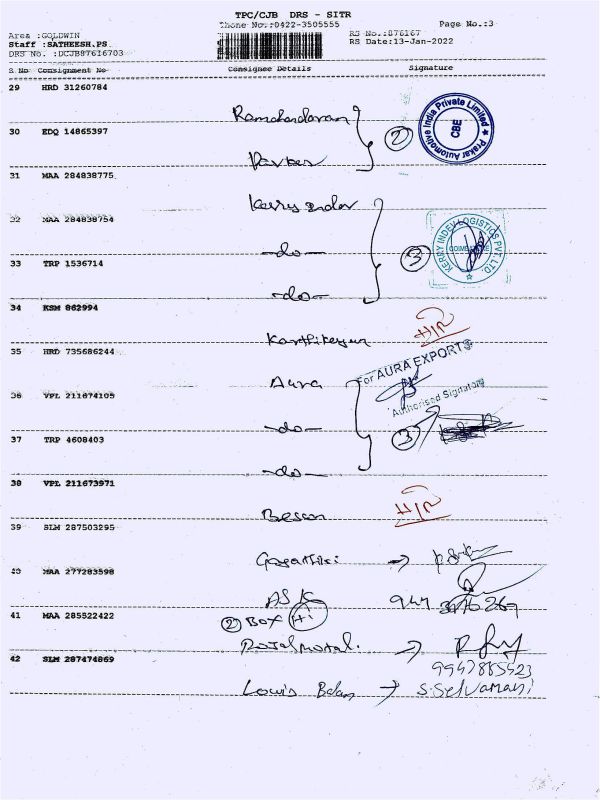 TPC/CJB DRS - SITR
Phone No.:0422-3505555
Page No.:3
Area :GOLDWIN
RS No.:876167
Staff :SATHEESH.PS
RS Date:13-Jan-2022
DRS No. :DCJB87616703
S No Consignment No Consignee Details Signature
29 HRD 31260784
Ramachandaran
Prakar Automotive India Private Limited
CBE
2
30 EDQ 14865397
31 MAA 284838775
Kerry Indev
32 MAA 284838754
-do-
3
KERRY INDEV LOGISTICS PVT. LTD.
COIMBATORE
33 TRP 1536714
-do-
34 KSM 862994
Karthikeyan
35 HRD 735686244
Aura
For AURA EXPORTS
36 VPL 211674105
Authorised Signatory
-do-
3
37 TRP 4608403
-do-
38 VPL 211673971
39 SLM 287503295
40 MAA 277283598
ASK
41 MAA 285522422
2 BOX
42 SLM 287474869
9957885523
Lowis
S.Selvamani